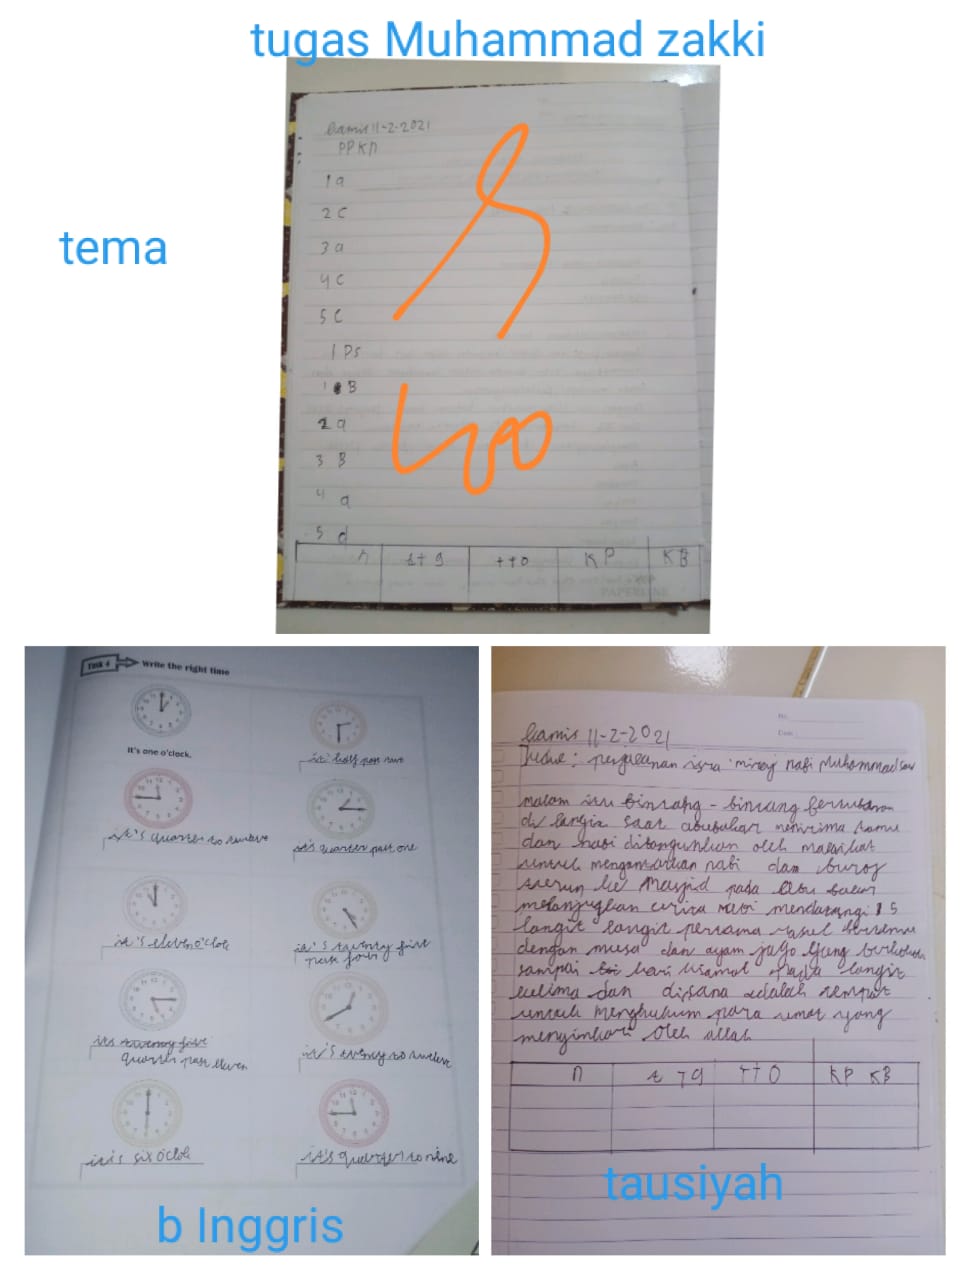 tugas Muhammad zakki
tema
kamis 11-2-2021
PPKn
1 a
2 C
3 a
4 C
5 C
1 Ps
1 B
2 a
3 B
4 a
5 d
n
t t g
t t o
KP
KB
PAPERLINE
100
Task 4
Write the right time
It's one o'clock.
it' half pas two
it's quarter to twelve
it's quarter past one
it's eleven o'clok
it's twenty five
past four
its twenty five
quarter past eleven
it's twenty to twelve
it is six o'clok
it's quarter to nine
b Inggris
No.
Date
kamis 11-2-2021
Judul : perjalanan isra' miraj nabi Muhammad saw
malam itu bintang - bintang
di langit saat abubakar menirima tamu
dan nabi dibangunkan oleh malaikat
untuk mengantarkan nabi dan buroq
turun ke masjid pada
cerita nabi mendatangi 5
langit langit pertama rasul bertemu
dengan musa dan ayam jago yang berkokok
sampai hari kiamat pada langit
kelima dan disana adalah tempat
untuk menghukum para umat yang
oleh allah
n
t t g
t t o
KP KB
tausiyah